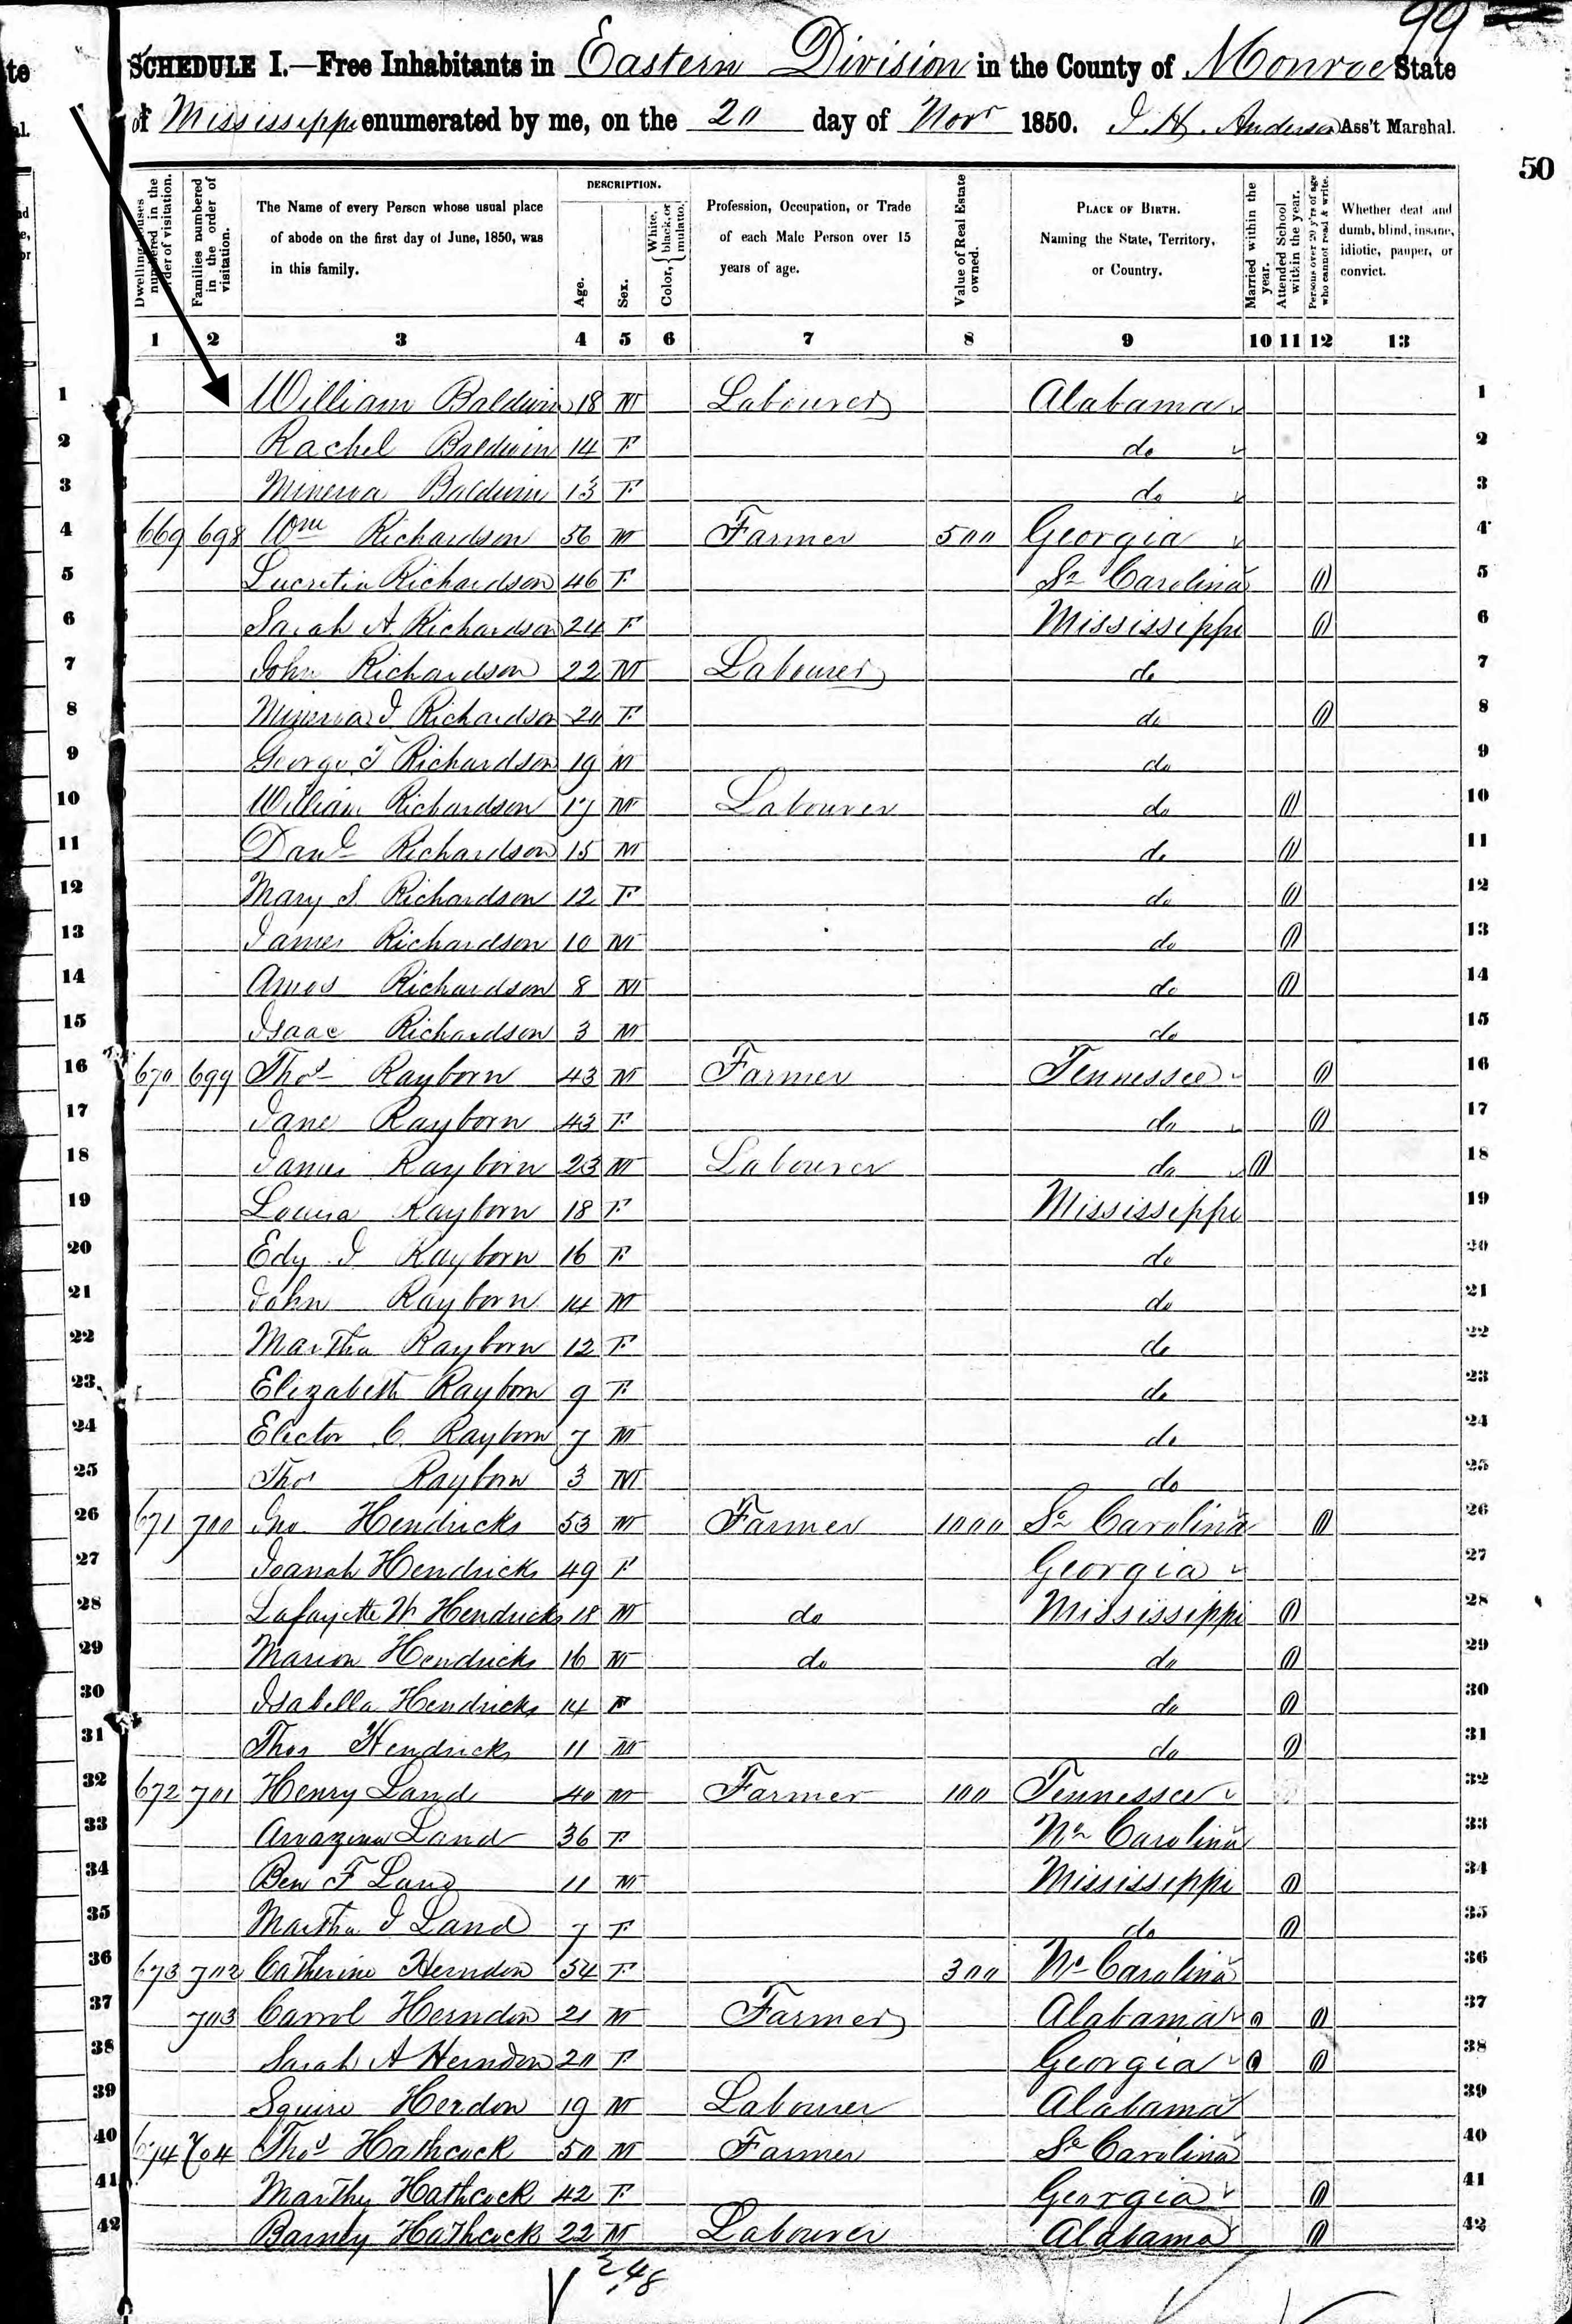 99
SCHEDULE I.—Free Inhabitants in Eastern Division in the County of Monroe State
of Mississippi enumerated by me, on the 20 day of Novr 1850. J H. Anderson Ass't Marshal.
50
Dwelling-houses numbered in the order of visitation.
Families numbered in the order of visitation.
The Name of every Person whose usual place of abode on the first day of June, 1850, was in this family.
DESCRIPTION.
Age.
Sex.
Color, { White, black, or mulatto.
Profession, Occupation, or Trade of each Male Person over 15 years of age.
Value of Real Estate owned.
PLACE OF BIRTH. Naming the State, Territory, or Country.
Married within the year.
Attended School within the year.
Persons over 20 y'rs of age who cannot read & write.
Whether deaf and dumb, blind, insane, idiotic, pauper, or convict.
1 2 3 4 5 6 7 8 9 10 11 12 13
1 William Baldwin 18 M Labourer Alabama 1
2 Rachel Baldwin 14 F do 2
3 Minerva Baldwin 13 F do 3
4 669 698 Wm Richardson 56 M Farmer 500 Georgia 4
5 Lucretia Richardson 46 F So Carolina 5
6 Sarah A Richardson 24 F Mississippi 6
7 John Richardson 22 M Labourer do 7
8 Minerva J Richardson 20 F do 8
9 George T Richardson 19 M do 9
10 William Richardson 17 M Labourer do 10
11 Danl Richardson 15 M do 11
12 Mary S Richardson 12 F do 12
13 James Richardson 10 M do 13
14 Amos Richardson 8 M do 14
15 Isaac Richardson 3 M do 15
16 670 699 Thos Rayborn 43 M Farmer Tennessee 16
17 Jane Rayborn 43 F do 17
18 James Rayborn 23 M Labourer do 18
19 Louisa Rayborn 18 F Mississippi 19
20 Edy J Rayborn 16 F do 20
21 John Rayborn 14 M do 21
22 Martha Rayborn 12 F do 22
23 Elizabeth Rayborn 9 F do 23
24 Elector C Rayborn 7 M do 24
25 Thos Rayborn 3 M do 25
26 671 700 Jno Hendricks 53 M Farmer 1000 So Carolina 26
27 Joanah Hendricks 49 F Georgia 27
28 Lafayette W Hendricks 18 M do Mississippi 28
29 Marion Hendricks 16 M do do 29
30 Isabella Hendricks 14 F do 30
31 Thos Hendricks 11 M do 31
32 672 701 Henry Land 40 M Farmer 100 Tennessee 32
33 Land 36 F No Carolina 33
34 Ben F Land 11 M Mississippi 34
35 Martha J Land 7 F do 35
36 673 702 Catherine Herndon 54 F 300 No Carolina 36
37 703 Carrol Herndon 21 M Farmer Alabama 37
38 Sarah A Herndon 20 F Georgia 38
39 Squire Herdon 19 M Labourer Alabama 39
40 674 704 Thos Hathcock 50 M Farmer So Carolina 40
41 Marthy Hathcock 42 F Georgia 41
42 Barney Hathcock 22 M Labourer Alabama 42